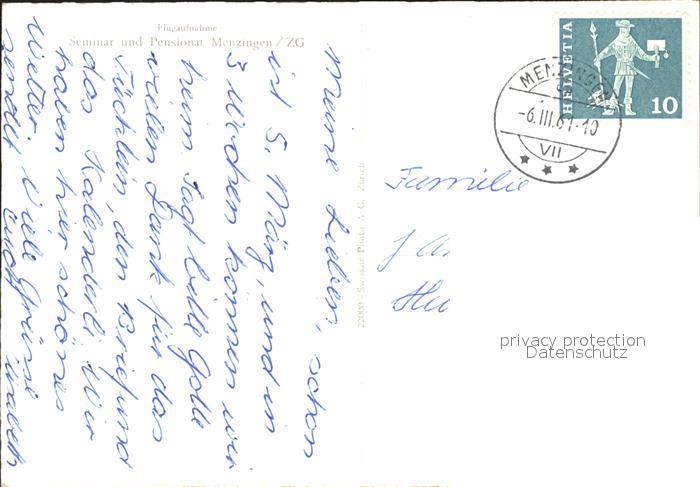 Flugaufnahme
Seminar und Pensionat Menzingen / ZG
Meine Lieben, schon
ist 5. März, und in
3 Wochen können wir
heim. Sagt bitte Gotte
vielen Dank für das
Tüchlein, den Brief und
das Kalenderli. Wir
haben hier schönes
Wetter. Viele Grüsse
sendet euch
22000 Swissair Photo A G. Zürich
HELVETIA
10
MENZINGEN
-6.III.61-10
VII
Familie
J
privacy protection
Datenschutz